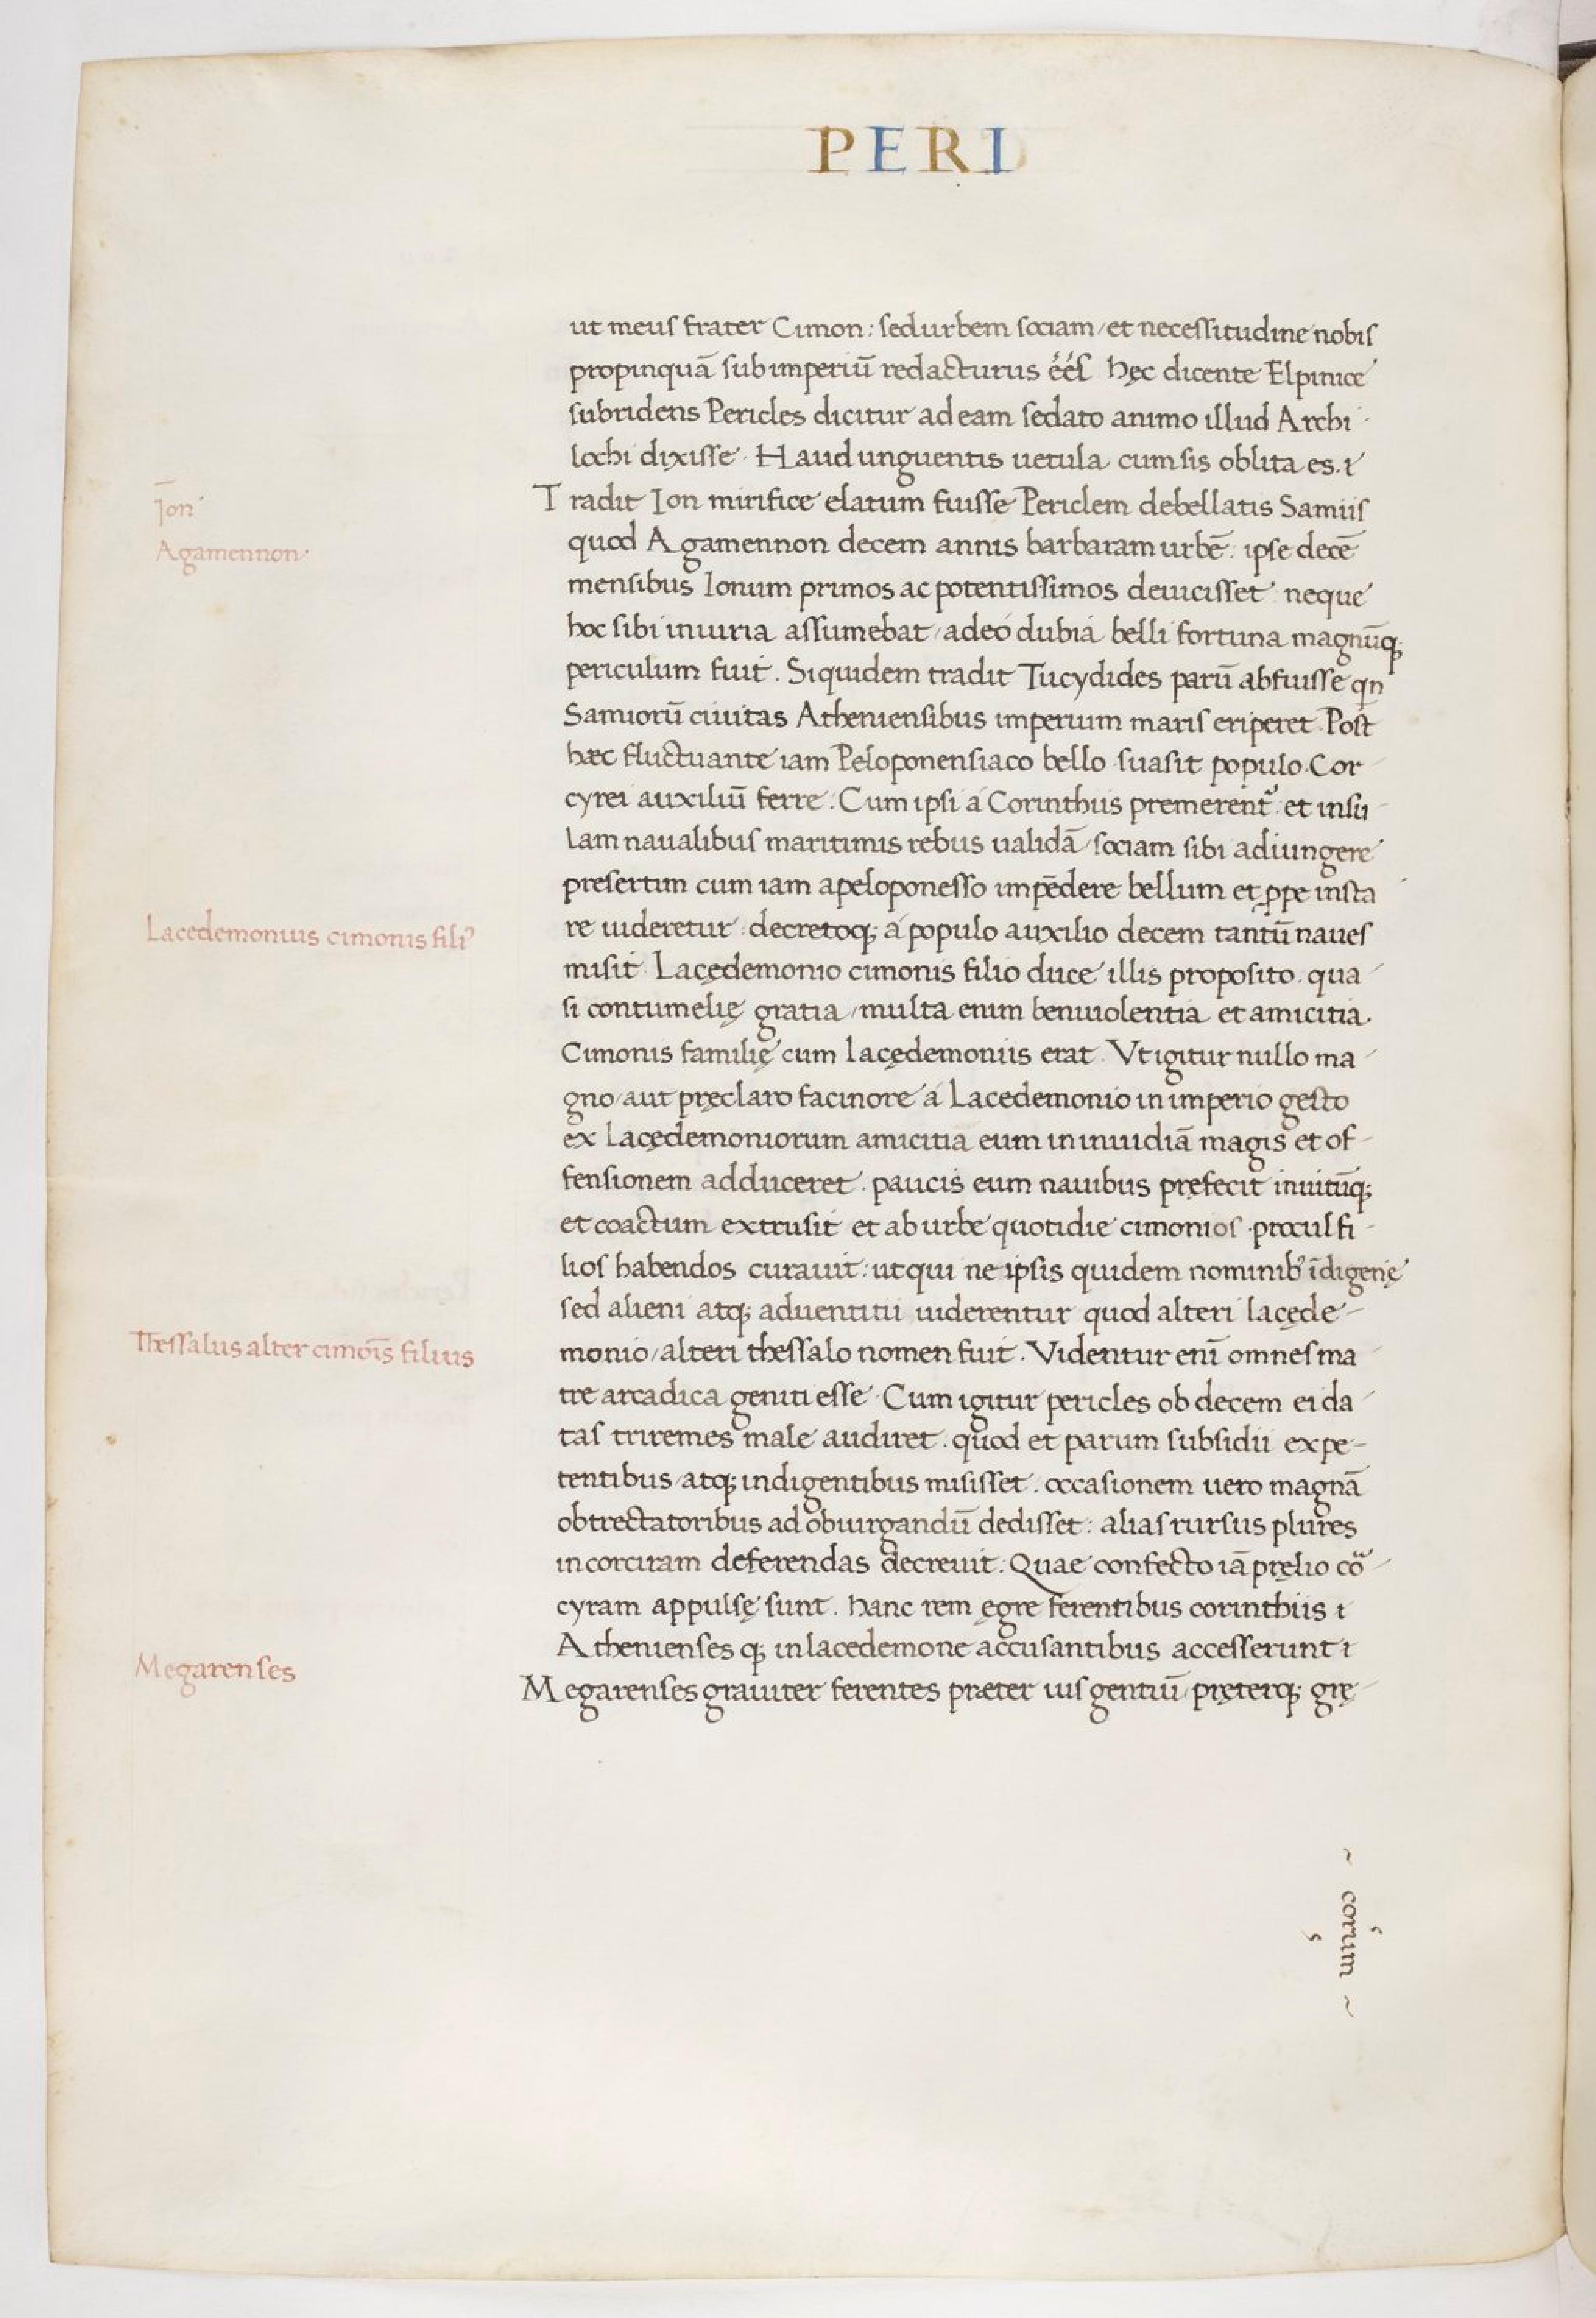 PERI
ut meus frater Cimon: sed urbem sociam/ et necessitudine nobis
propinquā sub imperiū redacturus éés. hęc dicente Elpinice
subridens Pericles dicitur ad eam sedato animo illud Archi-
lochi dixisse. Haud unguentis uetula cum sis oblita es.
Ion
Tradit Ion mirifice elatum fuisse Periclem debellatis Samiis
Agamennon
quod Agamennon decem annis barbaram urbē: ipse decē
mensibus Ionum primos ac potentissimos deuicisset neque
hoc sibi iniuria assumebat/ adeo dubia belli fortuna magnūq;
periculum fuit. Siquidem tradit Tucydides parū abfuisse qn
Samiorū ciuitas Atheniensibus imperium maris eriperet. Post
hæc fluctuante iam Peloponensiaco bello suasit populo Cor-
cyrei auxiliū ferre. Cum ipsi á Corinthiis premerent: et insu-
lam naualibus maritimis rebus ualidā/ sociam sibi adiungere
presertim cum iam apeloponesso impēdere bellum et ppe insta
Lacedemonius cimonis fili9
re uideretur: decretoq; á populo auxilio decem tantū naues
misit. Lacędemonio cimonis filio duce illis proposito. qua-
si contumelię gratia/ multa enim beniuolentia et amicitia
Cimonis familię cum lacędemoniis erat. Vt igitur nullo ma-
gno/ aut pręclaro facinore á Lacedemonio in imperio gesto
ex Lacędemoniorum amicitia eum in inuidiā magis et of-
fensionem adduceret. paucis eum nauibus pręfecit inuitūq;
et coactum extrusit et ab urbe quotidie cimonios procul fi-
lios habendos curauit: ut qui ne ipsis quidem nominib9 īdigenę
sed alieni atq; aduentitii uiderentur quod alteri lacęde-
Thessalus alter cimoīs filius
monio/ alteri thessalo nomen fuit. Videntur enī omnes ma-
tre arcadica geniti esse. Cum igitur pericles ob decem ei da-
tas triremes male audiret. quod et parum subsidii expe-
tentibus/ atq; indigentibus misisset. occasionem uero magnā
obtrectatoribus ad obiurgandū dedisset: alias rursus plures
in corciram deferendas decreuit: Quae confecto iā pręlio co-
cyram appulsę sunt. hanc rem ęgre ferentibus corinthiis
Athenienses q; in lacedemone accusantibus accesserunt
Megarenses
Megarenses grauiter ferentes præter ius gentiū/ pręterq; grę-
corum